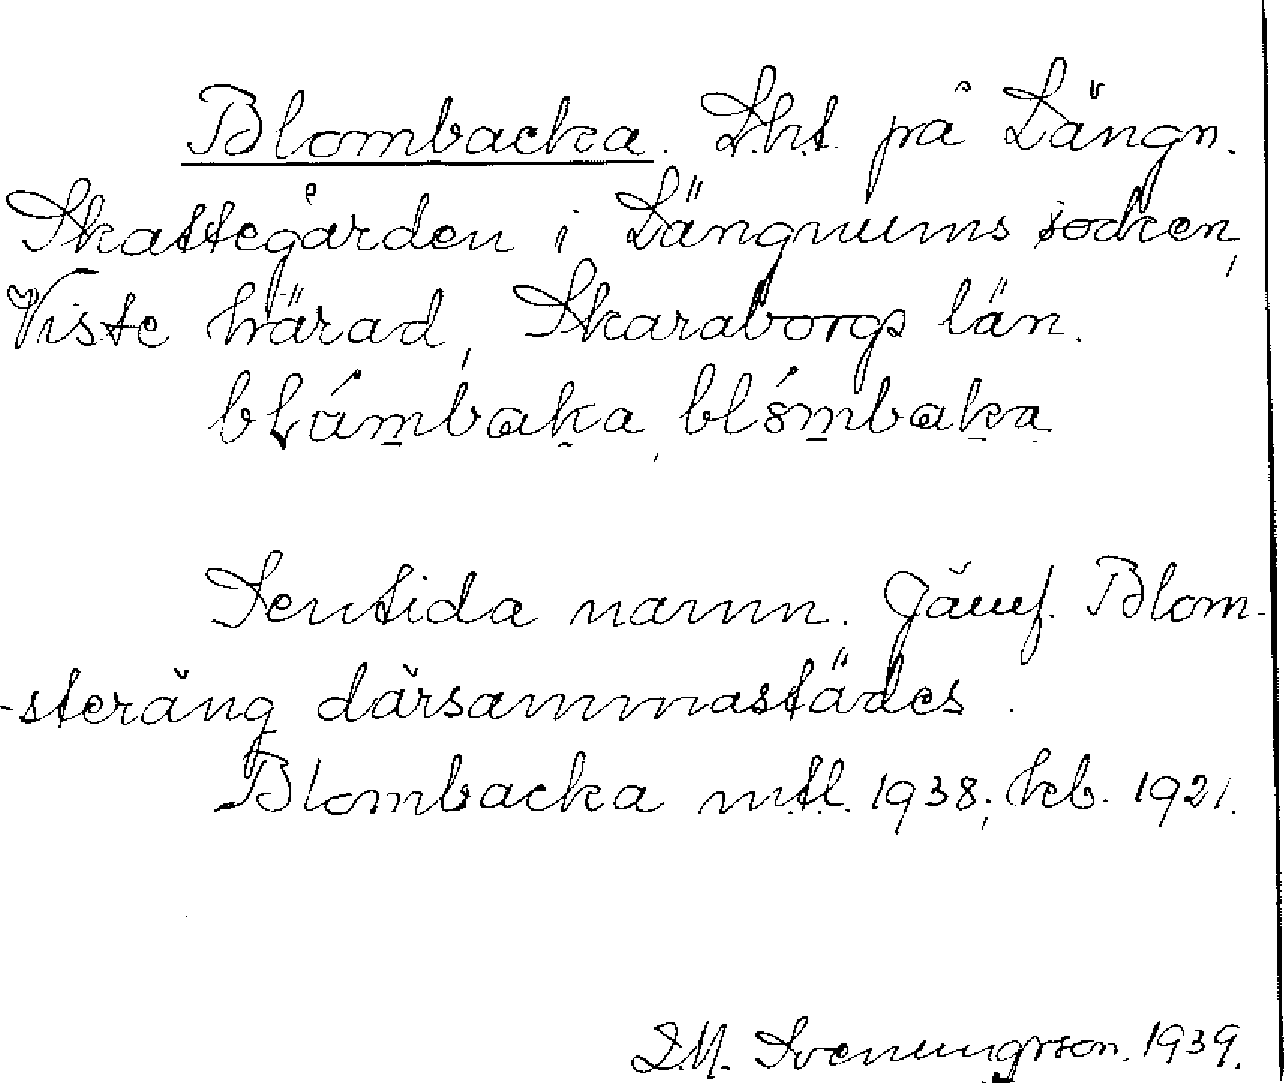 Blombacka. Lht. på Längn.
Skattegården i Längnums socken,
Viste härad, Skaraborgs län.
blåmbaka, blómbaka
Sentida namn. Jämf. Blom-
-steräng därsammastädes.
Blombacka mtl. 1938; kb. 1921.
Svenungsson. 1939.